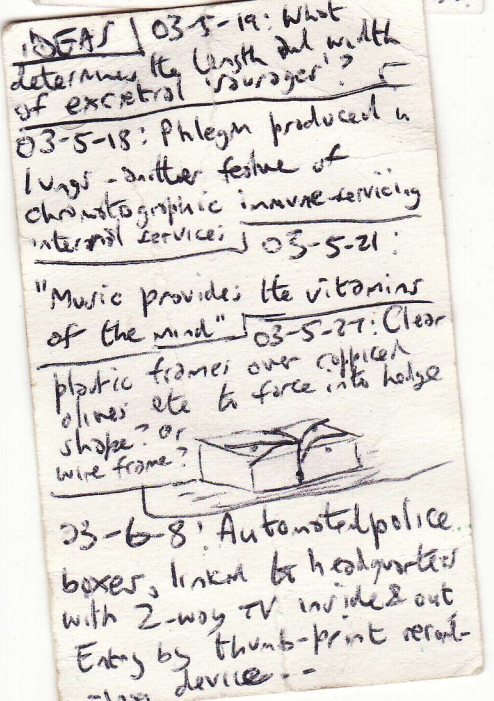 IDEAS | 03-5-19: What
determines the length and width
of excretral 'sausages'?
03-5-18: Phlegm produced in
lungs - another feature of
chromatographic immune-servicing
internal services 03-5-21:
"Music provides the vitamins
of the mind" 03-5-27: Clear
plastic frames over coppiced
olives etc to force into hedge
shape? or
wire frame?
03-6-8: Automated police
boxes, linked to headquarters
with 2-way TV inside & out
Entry by thumb-print
device...